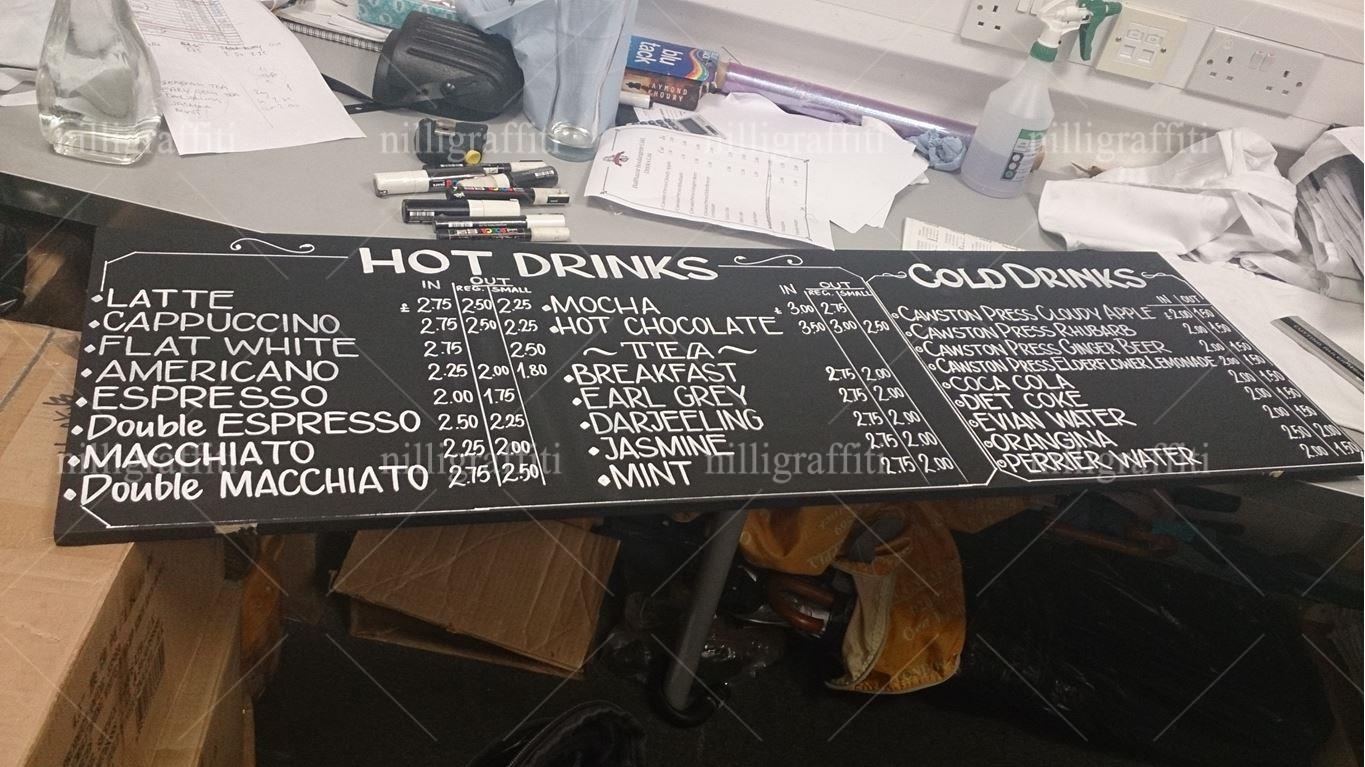 blu
tack
RAYMOND
KHOURY
nilligraffiti nilligraffiti nilligraffiti nilligraffiti
HOT DRINKS
IN OUT
REG. SMALL
• LATTE £ 2.75 2.50 2.25
• CAPPUCCINO 2.75 2.50 2.25
• FLAT WHITE 2.75 2.50
• AMERICANO 2.25 2.00 1.80
• ESPRESSO 2.00 1.75
• Double ESPRESSO 2.50 2.25
• MACCHIATO 2.25 2.00
• Double MACCHIATO 2.75 2.50
IN OUT
REG. SMALL
• MOCHA £ 3.00 2.75
• HOT CHOCOLATE 3.50 3.00 2.50
~ TEA ~
• BREAKFAST 2.75 2.00
• EARL GREY 2.75 2.00
• DARJEELING 2.75 2.00
• JASMINE 2.75 2.00
• MINT 2.75 2.00
COLD DRINKS
IN OUT
CAWSTON PRESS CLOUDY APPLE £2.00 1.50
CAWSTON PRESS RHUBARB 2.00 1.50
CAWSTON PRESS GINGER BEER 2.00 1.50
CAWSTON PRESS ELDERFLOWER LEMONADE 2.00 1.50
COCA COLA 2.00 1.50
DIET COKE 2.00 1.50
EVIAN WATER 2.00 1.50
ORANGINA 2.50 2.00
PERRIER WATER 2.00 1.50
nilligraffiti nilligraffiti nilligraffiti nilligraffiti